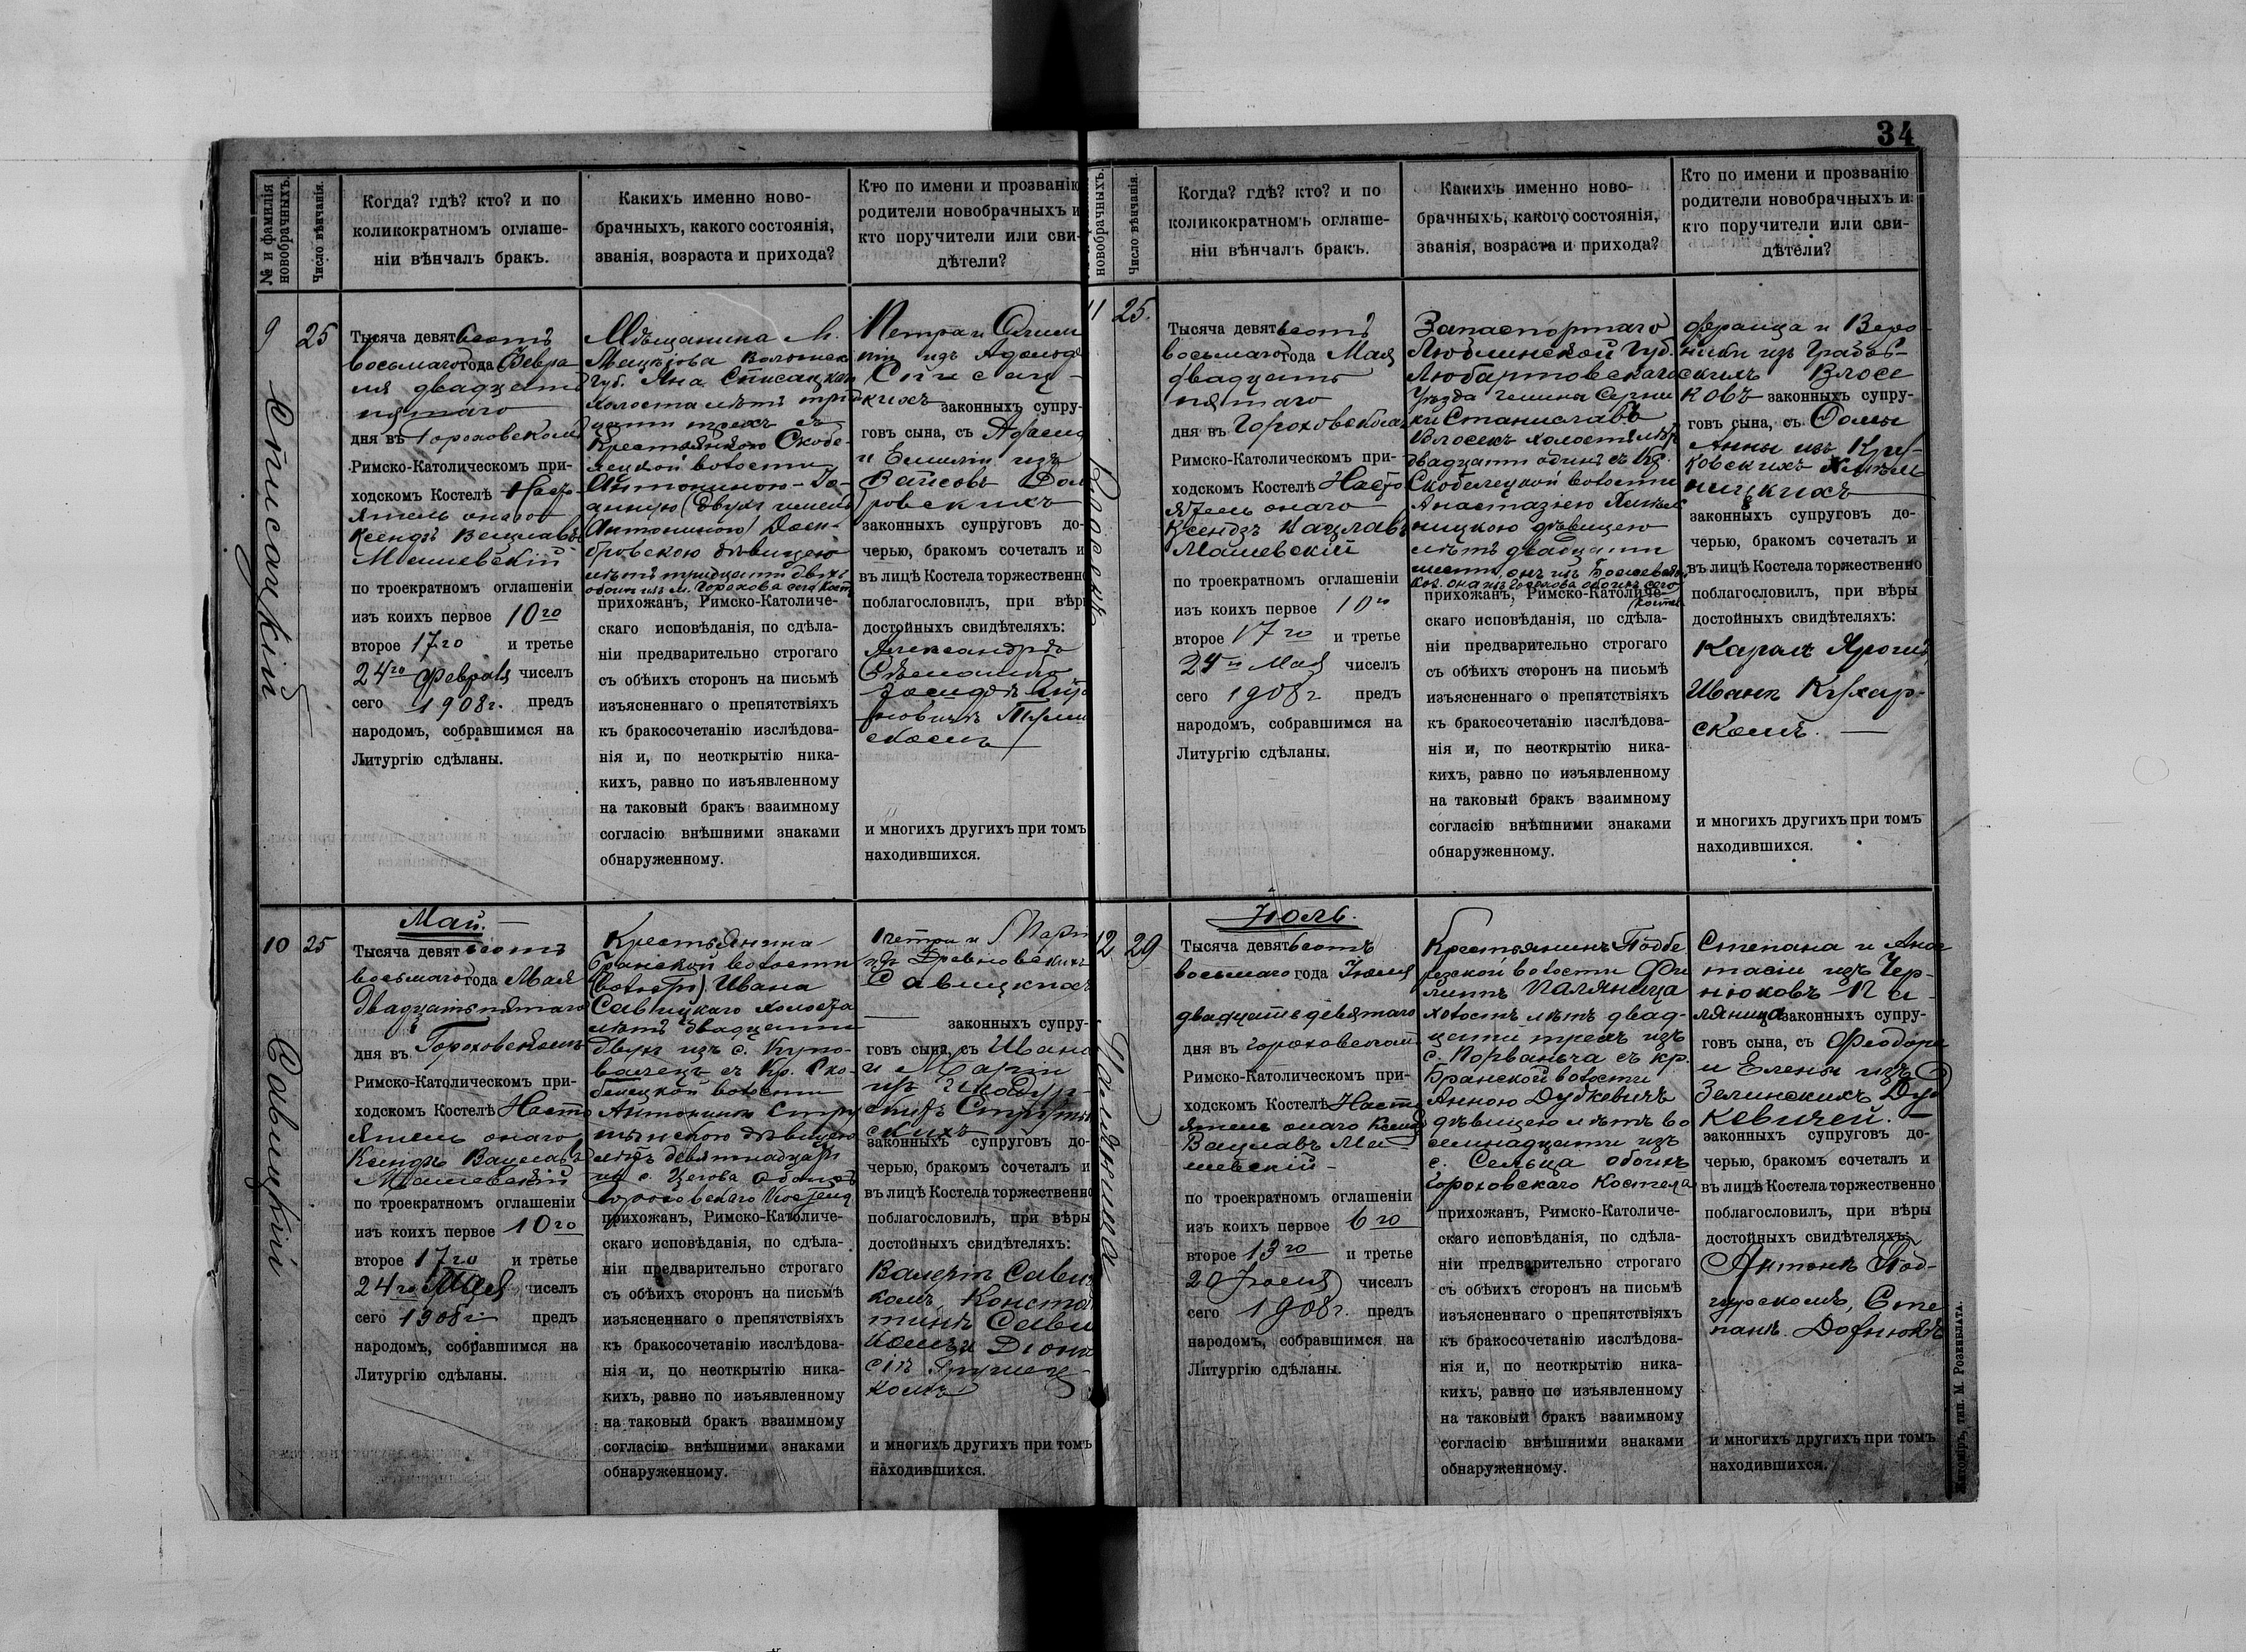 34
№ и фамилія новобрачныхъ.
Число вѣнчанія.
Когда? гдѣ? кто? и по
коликократномъ оглаше-
ніи вѣнчалъ бракъ.
Какихъ именно ново-
брачныхъ, какого состоянія,
званія, возраста и прихода?
Кто по имени и прозванію
родители новобрачныхъ и
кто поручители или сви-
дѣтели?
9
25
Тысяча девятьсотъ
восьмаго года Февра
ля двадцать
пятаго
дня въ Гороховскомъ
Римско-Католическомъ при-
ходскомъ Костелѣ Насто
ятель онаго
Ксендзъ Вацлавъ
Машевскій
по троекратномъ оглашеніи
изъ коихъ первое 10го
второе 17го и третье
24го Февраля чиселъ
сего 1908г. предъ
народомъ, собравшимся на
Литургію сдѣланы.
Мѣщанина М.
губ. Яна
холоста лѣтъ трид
цати трехъ съ
Крестьянкою Скобе-
лецкой волости
Антониною-
(двухъ именъ
Антониною) Домбровскою дѣвицею
лѣтъ тридцати двухъ
обоихъ изъ м. Горохова сего Кост
прихожанъ, Римско-Католиче-
скаго исповѣданія, по сдѣла-
ніи предварительно строгаго
съ обѣихъ сторонъ на письмѣ
изъясненнаго о препятствіяхъ
къ бракосочетанію изслѣдова-
нія и, по неоткрытію ника-
кихъ, равно по изъявленному
на таковый бракъ взаимному
согласію внѣшними знаками
обнаруженному.
Петра и
изъ
кихъ законныхъ супру-
говъ сына, съ
и Емиліи изъ
Вайсовъ Дом
ровскихъ
законныхъ супруговъ до-
черью, бракомъ сочеталъ и
въ лицѣ Костела торжественно
поблагословилъ, при вѣры
достойныхъ свидѣтеляхъ:
Александръ
и многихъ другихъ при томъ
находившихся.
10
25
Савицкій
Май.
Тысяча девятьсотъ
восьмаго года Мая
двадцать пятаго
дня въ Гороховскомъ
Римско-Католическомъ при-
ходскомъ Костелѣ Насто
ятель онаго
Ксендзъ Вацлавъ
Машевскій
по троекратномъ оглашеніи
изъ коихъ первое 10го
второе 17го и третье
24го Мая чиселъ
сего 1908г предъ
народомъ, собравшимся на
Литургію сдѣланы.
Крестьянина
Бранской волости
Ивана
Савицкаго холоста
лѣтъ двадцати
двухъ изъ с. Купо-
валецъ съ кр. Ско-
белецкой волости
Антониною Стру
тынскою дѣвицею
лѣтъ девятнадцати
изъ с. Цегова обоихъ
Гороховскаго Костела
прихожанъ, Римско-Католиче-
скаго исповѣданія, по сдѣла-
ніи предварительно строгаго
съ обѣихъ сторонъ на письмѣ
изъясненнаго о препятствіяхъ
къ бракосочетанію изслѣдова-
нія и, по неоткрытію ника-
кихъ, равно по изъявленному
на таковый бракъ взаимному
согласію внѣшними знаками
обнаруженному.
Петра и Март
изъ Древновскихъ
Савицкихъ
законныхъ супру-
говъ сына, съ Ивана
и Март
законныхъ супруговъ до-
черью, бракомъ сочеталъ и
въ лицѣ Костела торжественно
поблагословилъ, при вѣры
достойныхъ свидѣтеляхъ:
Валеріи Савиц
комъ, Констан
тинѣ Савиц
комъ и Діони
сіи
комъ
и многихъ другихъ при томъ
находившихся.
новобрачныхъ.
Число вѣнчанія.
Когда? гдѣ? кто? и по
коликократномъ оглаше-
ніи вѣнчалъ бракъ.
Какихъ именно ново-
брачныхъ, какого состоянія,
званія, возраста и прихода?
Кто по имени и прозванію
родители новобрачныхъ и
кто поручители или сви-
дѣтели?
11
25.
Влосекъ
Тысяча девятьсотъ
восьмаго года Мая
двадцать
пятаго
дня въ Гороховскомъ
Римско-Католическомъ при-
ходскомъ Костелѣ Насто
ятель онаго
Ксендзъ Вацлавъ
Машевскій
по троекратномъ оглашеніи
изъ коихъ первое 10го
второе 17го и третье
24го Мая чиселъ
сего 1908г предъ
народомъ, собравшимся на
Литургію сдѣланы.
Запаспортнаго
Люблинской Губ.
Любартовскаго
уѣзда гмины Серни
ки Станиславъ
Влосекъ холостъ лѣтъ
двадцати одинъ съ кр.
Скобелецкой волости
Анастазіею
ницкою дѣвицею
лѣтъ двадцати
прихожанъ, Римско-Католиче-
скаго исповѣданія, по сдѣла-
ніи предварительно строгаго
съ обѣихъ сторонъ на письмѣ
изъясненнаго о препятствіяхъ
къ бракосочетанію изслѣдова-
нія и, по неоткрытію ника-
кихъ, равно по изъявленному
на таковый бракъ взаимному
согласію внѣшними знаками
обнаруженному.
Франца и Веро
ники изъ Грабов-
скихъ Влосе
ковъ законныхъ супру-
говъ сына, съ Фомы
Анны изъ Кру
ковскихъ
ницкихъ
законныхъ супруговъ до-
черью, бракомъ сочеталъ и
въ лицѣ Костела торжественно
поблагословилъ, при вѣры
достойныхъ свидѣтеляхъ:
Каролѣ
Иванѣ Кухар-
скомъ.
и многихъ другихъ при томъ
находившихся.
12
29
Паляница
Іюль.
Тысяча девятьсотъ
восьмаго года Іюля
двадцать девятаго
дня въ Гороховскомъ
Римско-Католическомъ при-
ходскомъ Костелѣ Насто
ятель онаго Ксендзъ
Вацлавъ Ма-
шевскій
по троекратномъ оглашеніи
изъ коихъ первое 6го
второе 13го и третье
20 Іюля чиселъ
сего 1908г. предъ
народомъ, собравшимся на
Литургію сдѣланы.
Крестьянинъ Подбе
резской волости Фи
липъ Паляница
холостъ лѣтъ двад-
цати трехъ изъ
с. Порванча съ кр.
Бранской волости
Анною Дудкевичъ
дѣвицею лѣтъ во
семнадцати изъ
с. Сельца обоихъ
Гороховскаго Костела
прихожанъ, Римско-Католиче-
скаго исповѣданія, по сдѣла-
ніи предварительно строгаго
съ обѣихъ сторонъ на письмѣ
изъясненнаго о препятствіяхъ
къ бракосочетанію изслѣдова-
нія и, по неоткрытію ника-
кихъ, равно по изъявленному
на таковый бракъ взаимному
согласію внѣшними знаками
обнаруженному.
Степана и Анас
тасіи изъ Чер-
нюковъ Па-
ляница законныхъ супру-
говъ сына, съ Феодора
и Елены изъ
Зелинскихъ Дуд
кевичей.
законныхъ супруговъ до-
черью, бракомъ сочеталъ и
въ лицѣ Костела торжественно
поблагословилъ, при вѣры
достойныхъ свидѣтеляхъ:
Антонѣ Под-
гурскомъ, Сте
панѣ
и многихъ другихъ при томъ
находившихся.
Житоміръ, тип. М. Розенблата.